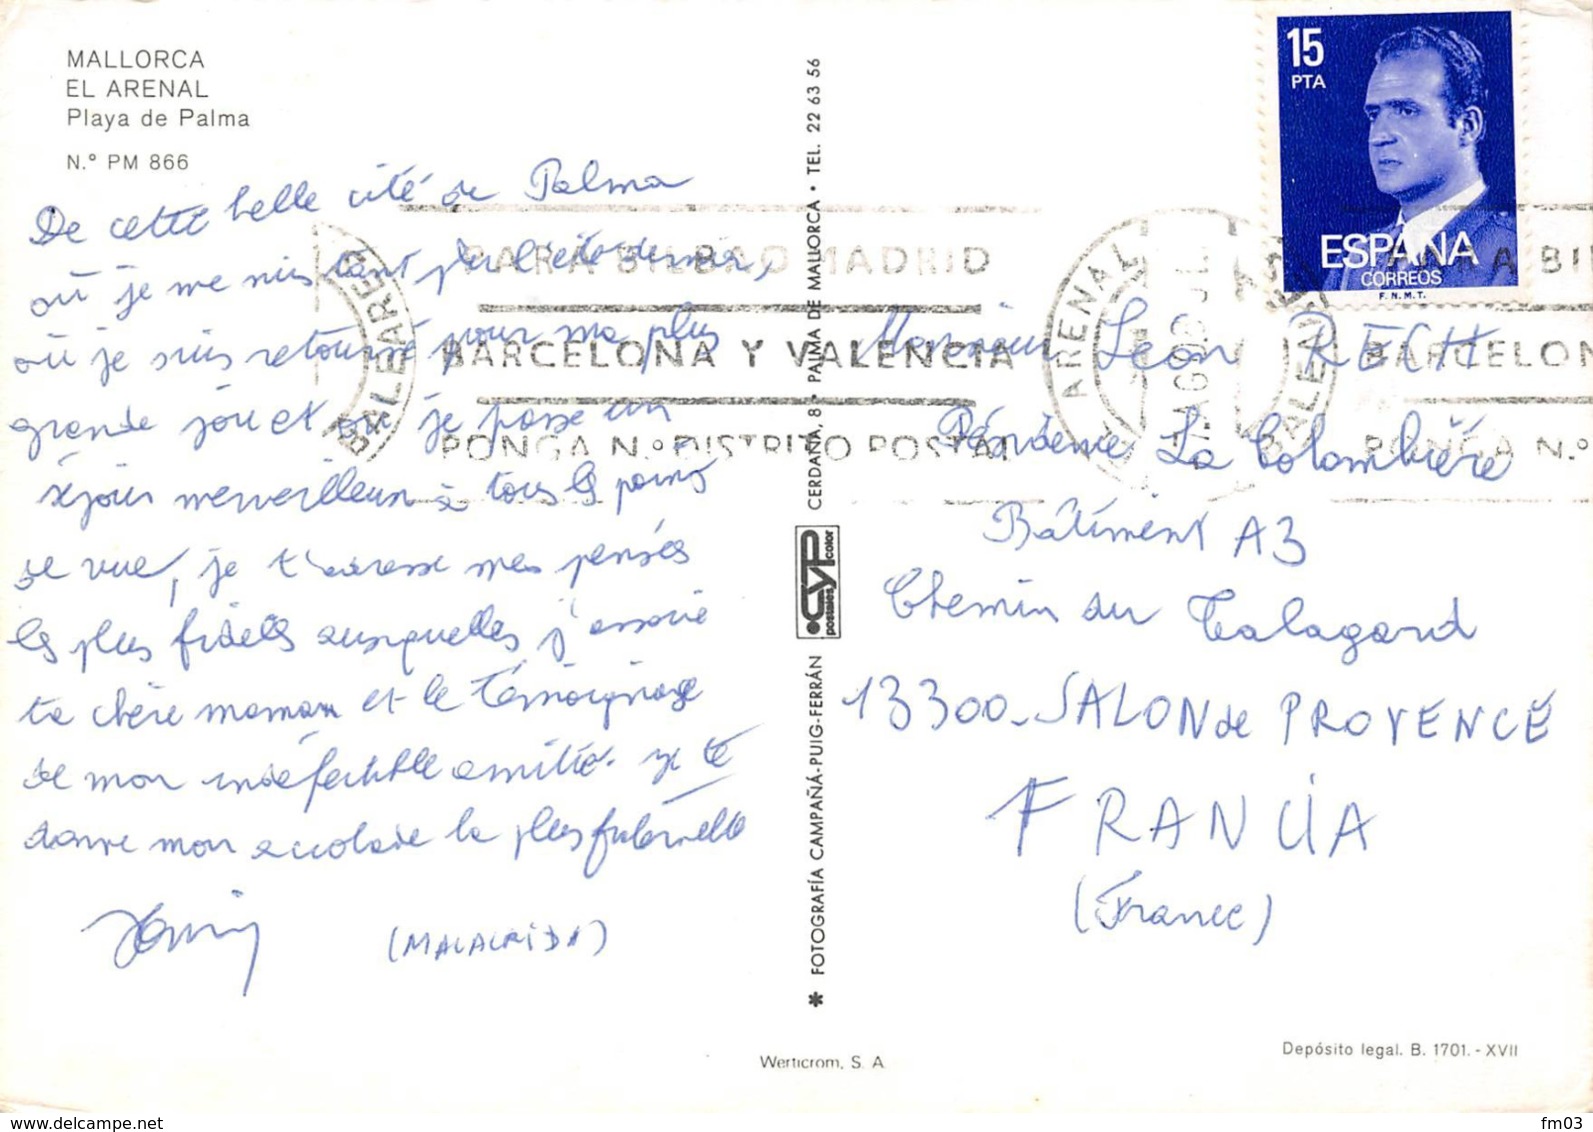 MALLORCA
EL ARENAL
Playa de Palma
N.º PM 866
De cette belle cité de Palma
où je me suis tant
où je suis retourné pour ma plus
grande joie et où je passe un
séjour merveilleux à tous les points
de vue, je t'adresse mes pensées
les plus fidèles auxquelles j'associe
ta chère maman et le témoignage
de mon indéfectible amitié. Je te
donne mon accolade la plus fraternelle
(MALACRIDA)
CERDAÑA, 8 • PALMA DE MALLORCA • TEL. 22 63 56
CYP
postales color
* FOTOGRAFÍA CAMPAÑÁ-PUIG-FERRÁN
Werticrom, S. A.
15
PTA
ESPAÑA
CORREOS
F.N.M.T.
PARA BILBAO MADRID
BARCELONA Y VALENCIA
PONGA N.º DISTRITO POSTAL
ARENAL
BALEARES
BALEARES
PARA BI
BARCELON
PONGA N.º
Monsieur Léon RECH
Résidence La Colombière
Bâtiment A3
Chemin du Talagard
13300-SALON de PROVENCE
FRANCIA
(France)
Depósito legal. B. 1701.-XVII
www.delcampe.net
fm03